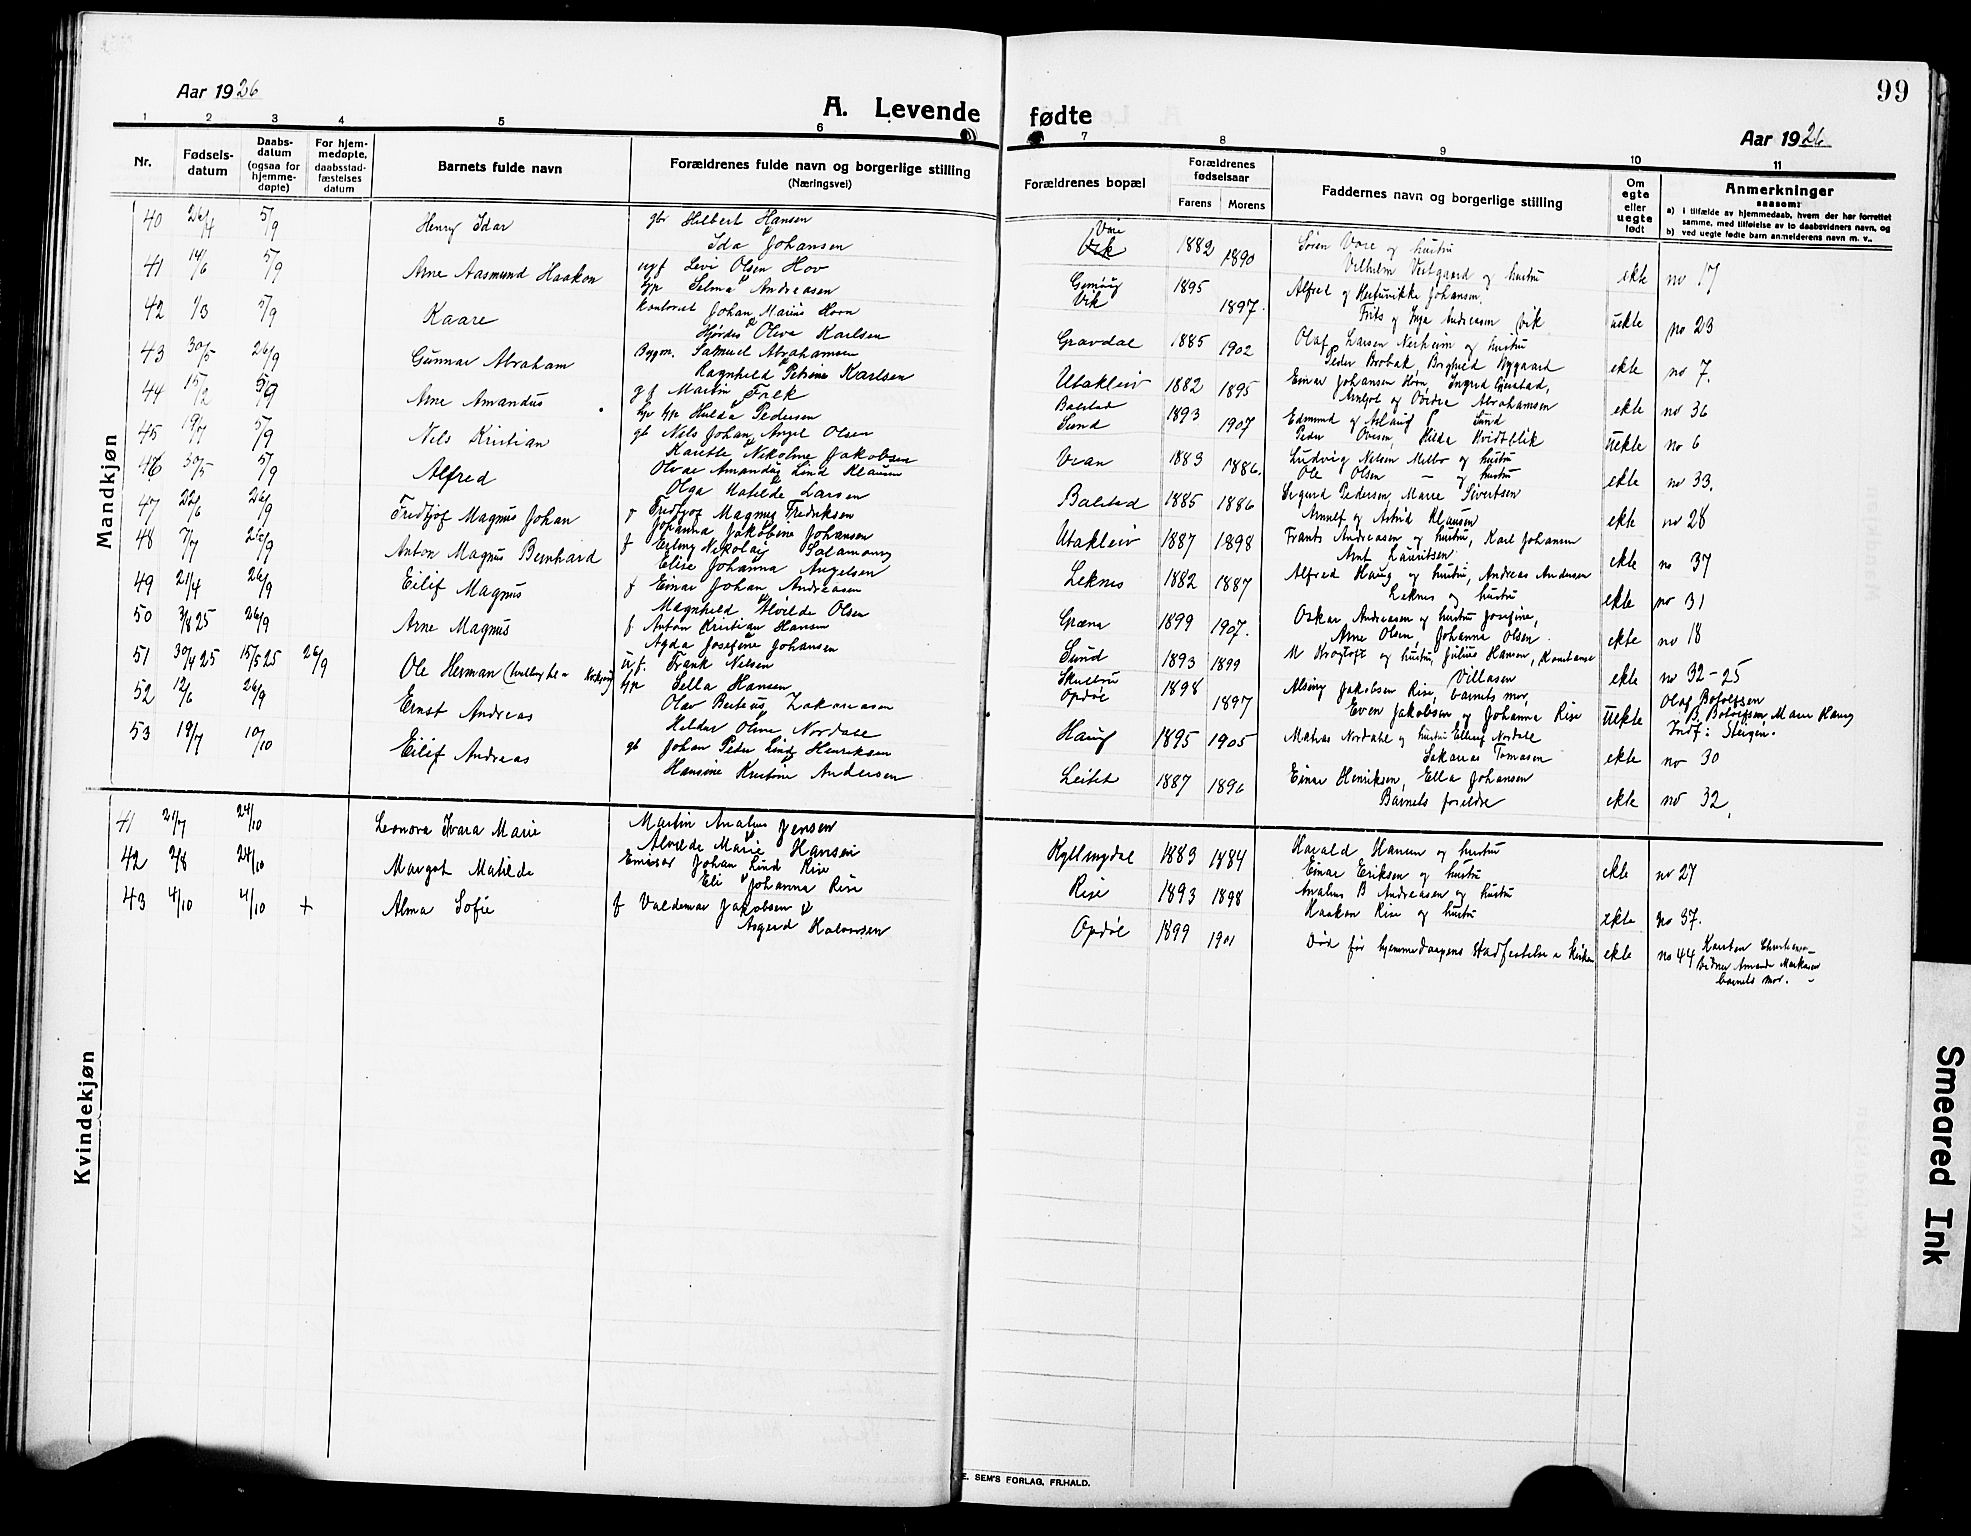 Aar 1926
A. Levende fødte
99
Aar 1926
1 2 3 4 5 6 7 8 9 10 11
Nr.
Fødsels-
datum
Daabs-
datum
(ogsaa for
hjemme-
døpte)
For hjem-
medøpte,
daabsstad-
fæstelses
datum
Barnets fulde navn
Forældrenes fulde navn og borgerlige stilling
(Næringsvei)
Forældrenes bopæl
Forældrenes
fødselsaar
Farens Morens
Faddernes navn og borgerlige stilling
Om
egte
eller
uegte
født
Anmerkninger
saasom:
a) i tilfælde av hjemmedaab, hvem der har forrettet
samme, med tilføielse av to daabsvidners navn, og
b) ved uegte fødte barn anmelderens navn m. v..
Mandkjøn
40 26/4 5/9 Henry Idar gbr Hilbert Hansen
Ida Johansen
Vare
Vik 1882 1890 Søren Vare og hustru
Vilhelm Vestgaard og hustru ekte no 17
41 14/6 5/9 Arne Aasmund Haakon ugf Levi Olsen Hov
hp Selma Andreasen
Gimsøy
Vik 1895 1897 Alfred og Johansen
Frits og Inga Andreasen Vik uekte no 23
42 1/3 5/9 Kaare kontorist Johan Marius Horn
Hjørdis Oliva Karlsen
Gravdal 1885 1902 Olaf Larsen Nerheim og hustru
Peder Brobak, Borghild Nygaard ekte no 7.
43 30/5 26/9 Gunnar Abraham Bygm. Samuel Abrahamsen
Ragnhild Petrine Karlsen
Utakleiv 1882 1895 Einar Johansen Horn, Ingrid Gjerstad,
Arnljot og Ovidie Abrahamsen ekte no 36
44 15/2 5/9 Arne Amandus gf Martin Falk
hp Hulda Pedersen
Balstad
Sund 1893 1907 Edmund og Aslaug Sund
Peder Ovesen, Hilda Hvidtblik uekte no 6
45 19/7 5/9 Nels Kristian gb Nels Johan Angel Olsen
Karette Nikoline Jakobsen
Vean 1883 1886. Ludvig Nelsen Melbo og hustru
Ole Olsen — og hustru ekte no 33.
46 30/5 5/9 Alfred Olvar Amandus Lind Klausen
Olga Matilde Larsen
Balstad 1885 1886 Sigurd Pedersen, Marie Sivertsen
Arnulf og Astrid Klausen ekte no 28
47 22/6 26/9 Fredtjof Magnus Johan f Fredtjof Magnus Fredriksen
Johanna Jakobine Johansen
Utakleiv 1887 1898 Frants Andreasen og hustru, Karl Johansen
Arnt Lauritsen ekte no 37
48 7/7 26/9 Anton Magnus Bernhard f Erling Nikolai Salamonsen
Elise Johanna Angelsen
Leknes 1882 1887 Alfred Haug og hustru, Andreas Andersen
Leknes og hustru ekte no 31
49 21/4 26/9 Eilif Magnus f Einar Johan Andreasen
Magnhild Alvilde Olsen
Græna 1899 1907. Oskar Andreasen og hustru Josefine,
Arne Olsen, Johanna Olsen ekte no 18
50 3/8 25 26/9 Arne Magnus f. Anton Kristian Hansen
Agda Josefine Johansen
Sund 1893 1899 M Krogtoft og hustru, Julius Hansen, Konstanse
Villasen ekte no 32-25
51 30/4 25 15/5 25 26/9 Ole Herman u.f. Frank Nelsen
hp Sella Hansen
Opdøl 1898 1897 Alsing Jakobsen Rise, barnets mor,
Even Jakobsen og Johanna Rise uekte Olaf Botolfsen
B. Botolfsen, Marie Haug
Indf: Steigen.
52 12/6 26/9 Ernst Andreas Olav Berteus Zakariasen
Heldur Oline Nordale
Haug 1895 1905 Matias Nordahl og hustru Elling Nordale
Sakarias Tomasen ekte no 30
53 19/7 10/10 Eilif Andreas gb Johan Peder Lind Henriksen
Hansine Kristine Andersen
Leitet 1887 1896 Einar Henriksen, Ella Johansen
Barnets foreldre ekte no 32.
Kvindekjøn
41 21/7 24/10 Leonora Ivara Marie Martin Analius Jensen
Alvilde Marie Hansen
Kyllingdal 1883 1884 Harald Hansen og hustru
Einar Eriksen og hustru ekte no 27
42 2/8 24/10 Margot Matilde Emissær Johan Lind Rise
Eli Johanna Rise
Rise 1893 1898 Analius B Andreasen og hustru
Haakon Rise og hustru ekte no 37.
43 4/10 4/10 + Alma Sofie f Valdemar Jakobsen
Asgerd Halvorsen
Opdøl 1899 1901 Død før hjemmedaapens stadfestelse i kirken ekte no 44
barnets mor.
E. SEM'S FORLAG, FR.HALD.
Smeared Ink